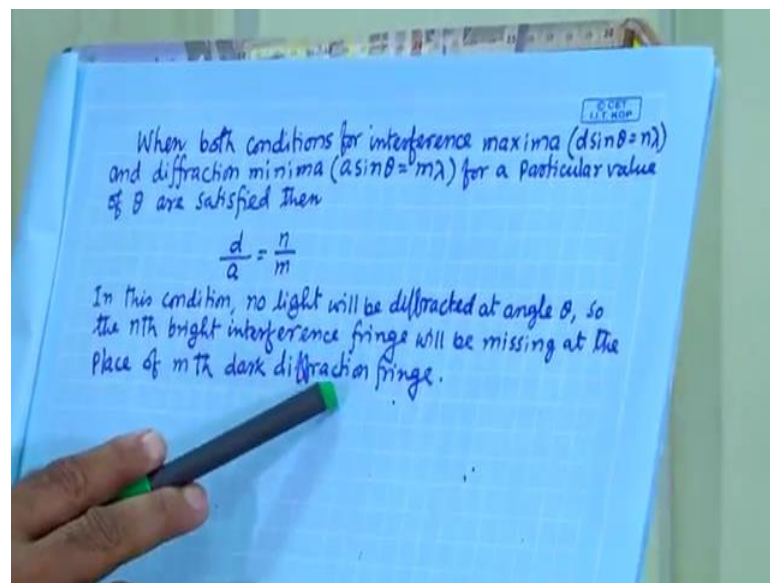 © CET
I.I.T. KGP
When both conditions for interference maxima (dsinθ=nλ)
and diffraction minima (asinθ= mλ) for a particular value
of θ are satisfied then
d/a = n/m
In this condition, no light will be diffracted at angle θ, so
the nth bright interference fringe will be missing at the
Place of mth dark diffraction fringe.